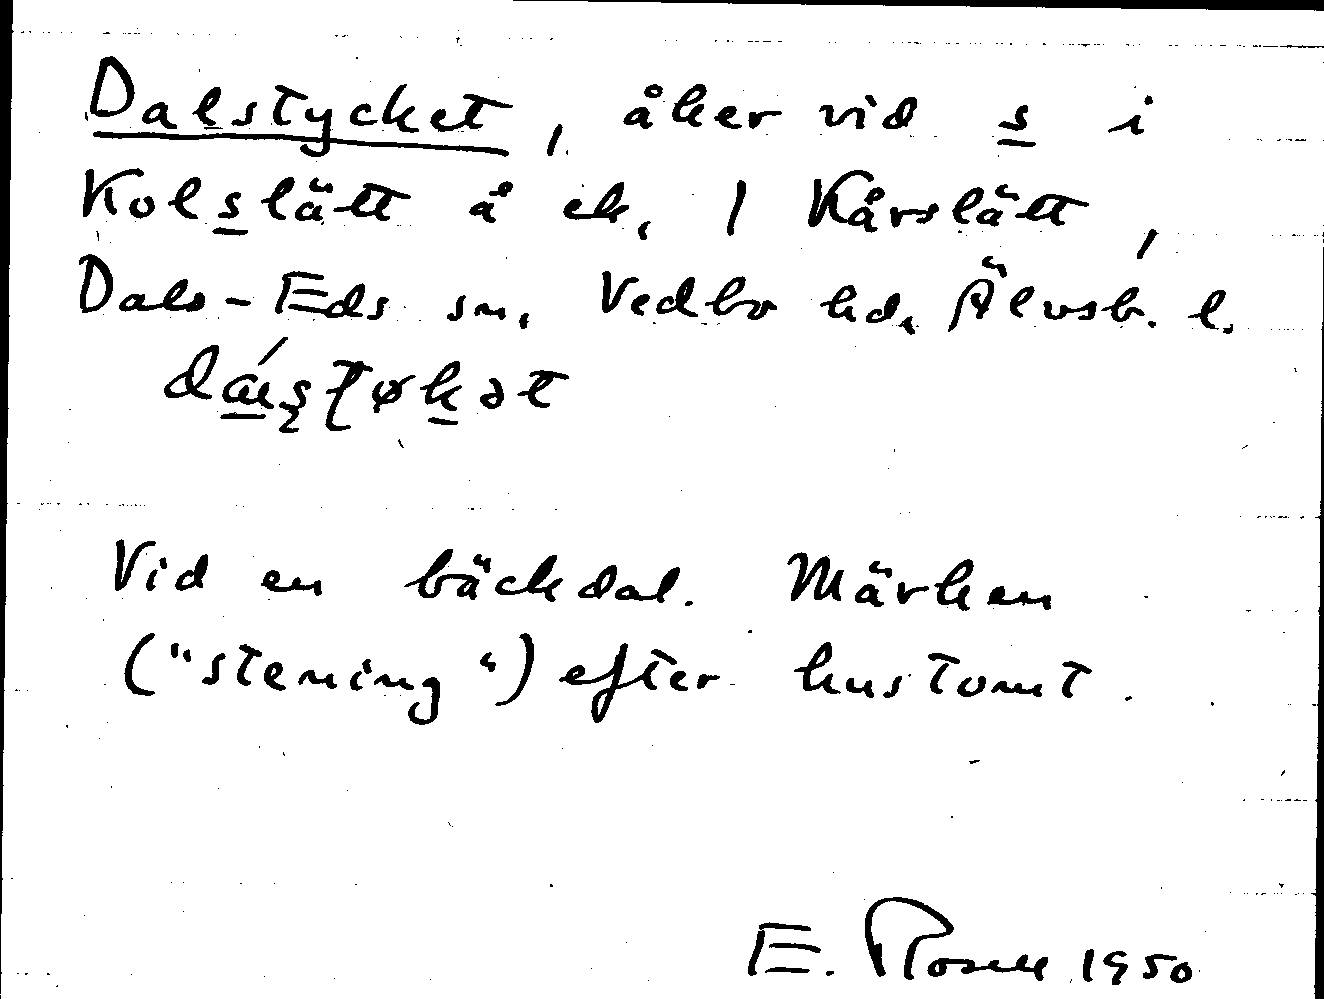 Dalstycket, åker vid s i
Kolslätt å ek, 1 Kårslätt,
Dals-Eds sn, Vedbo hd, Älvsb. l.
Vid en bäckdal. Märken
("stening") efter hustomt.
E. Rosell 1950